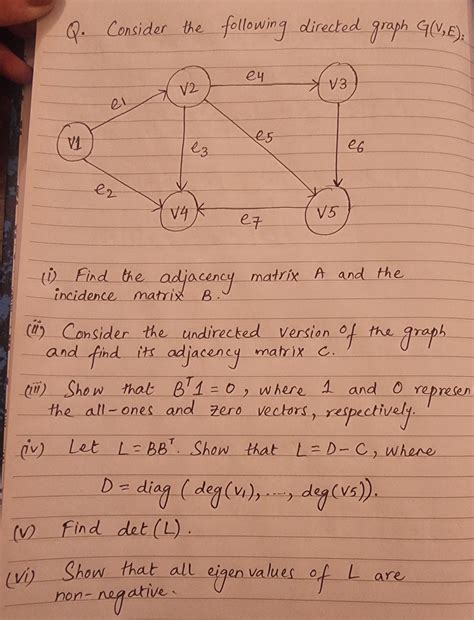 Q. Consider the following directed graph G(V,E):
e4
V2
V3
e1
V1
e3
e5
e6
e2
V4
e7
V5
(i) Find the adjacency matrix A and the
incidence matrix B.
(ii) Consider the undirected version of the graph
and find its adjacency matrix C.
(iii) Show that Bᵀ1 = 0, where 1 and 0 represen
the all-ones and zero vectors, respectively.
(iv) Let L = BBᵀ. Show that L = D - C, where
D = diag (deg(V1), ...., deg(V5)).
(v) Find det(L).
(vi) Show that all eigenvalues of L are
non-negative.